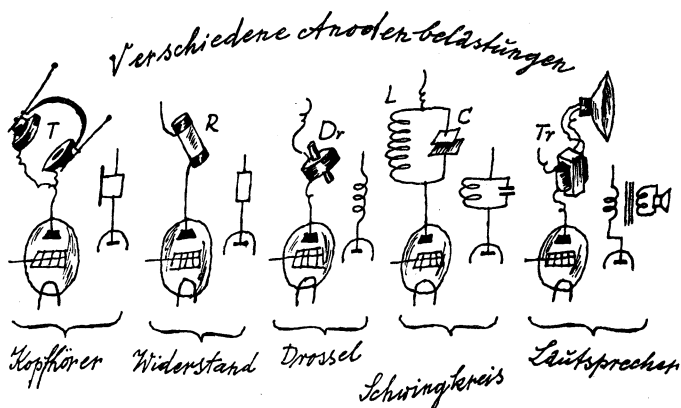 Verschiedene Anodenbelastungen
T
R
Dr
L
C
Tr
Kopfhörer
Widerstand
Drossel
Schwingkreis
Lautsprecher